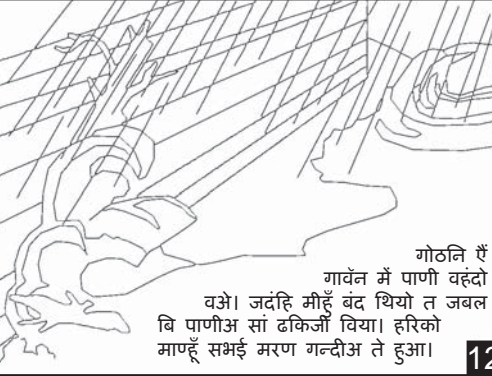 गोठनि ऐं
गावॅन में पाणी वहंदो
वञे। जदंहि मीहुँ बंद थियो त जबल
बि पाणीअ सां ढकिजी विया। हरिको
माण्हूँ सभई मरण गन्दीअ ते हुआ।
12